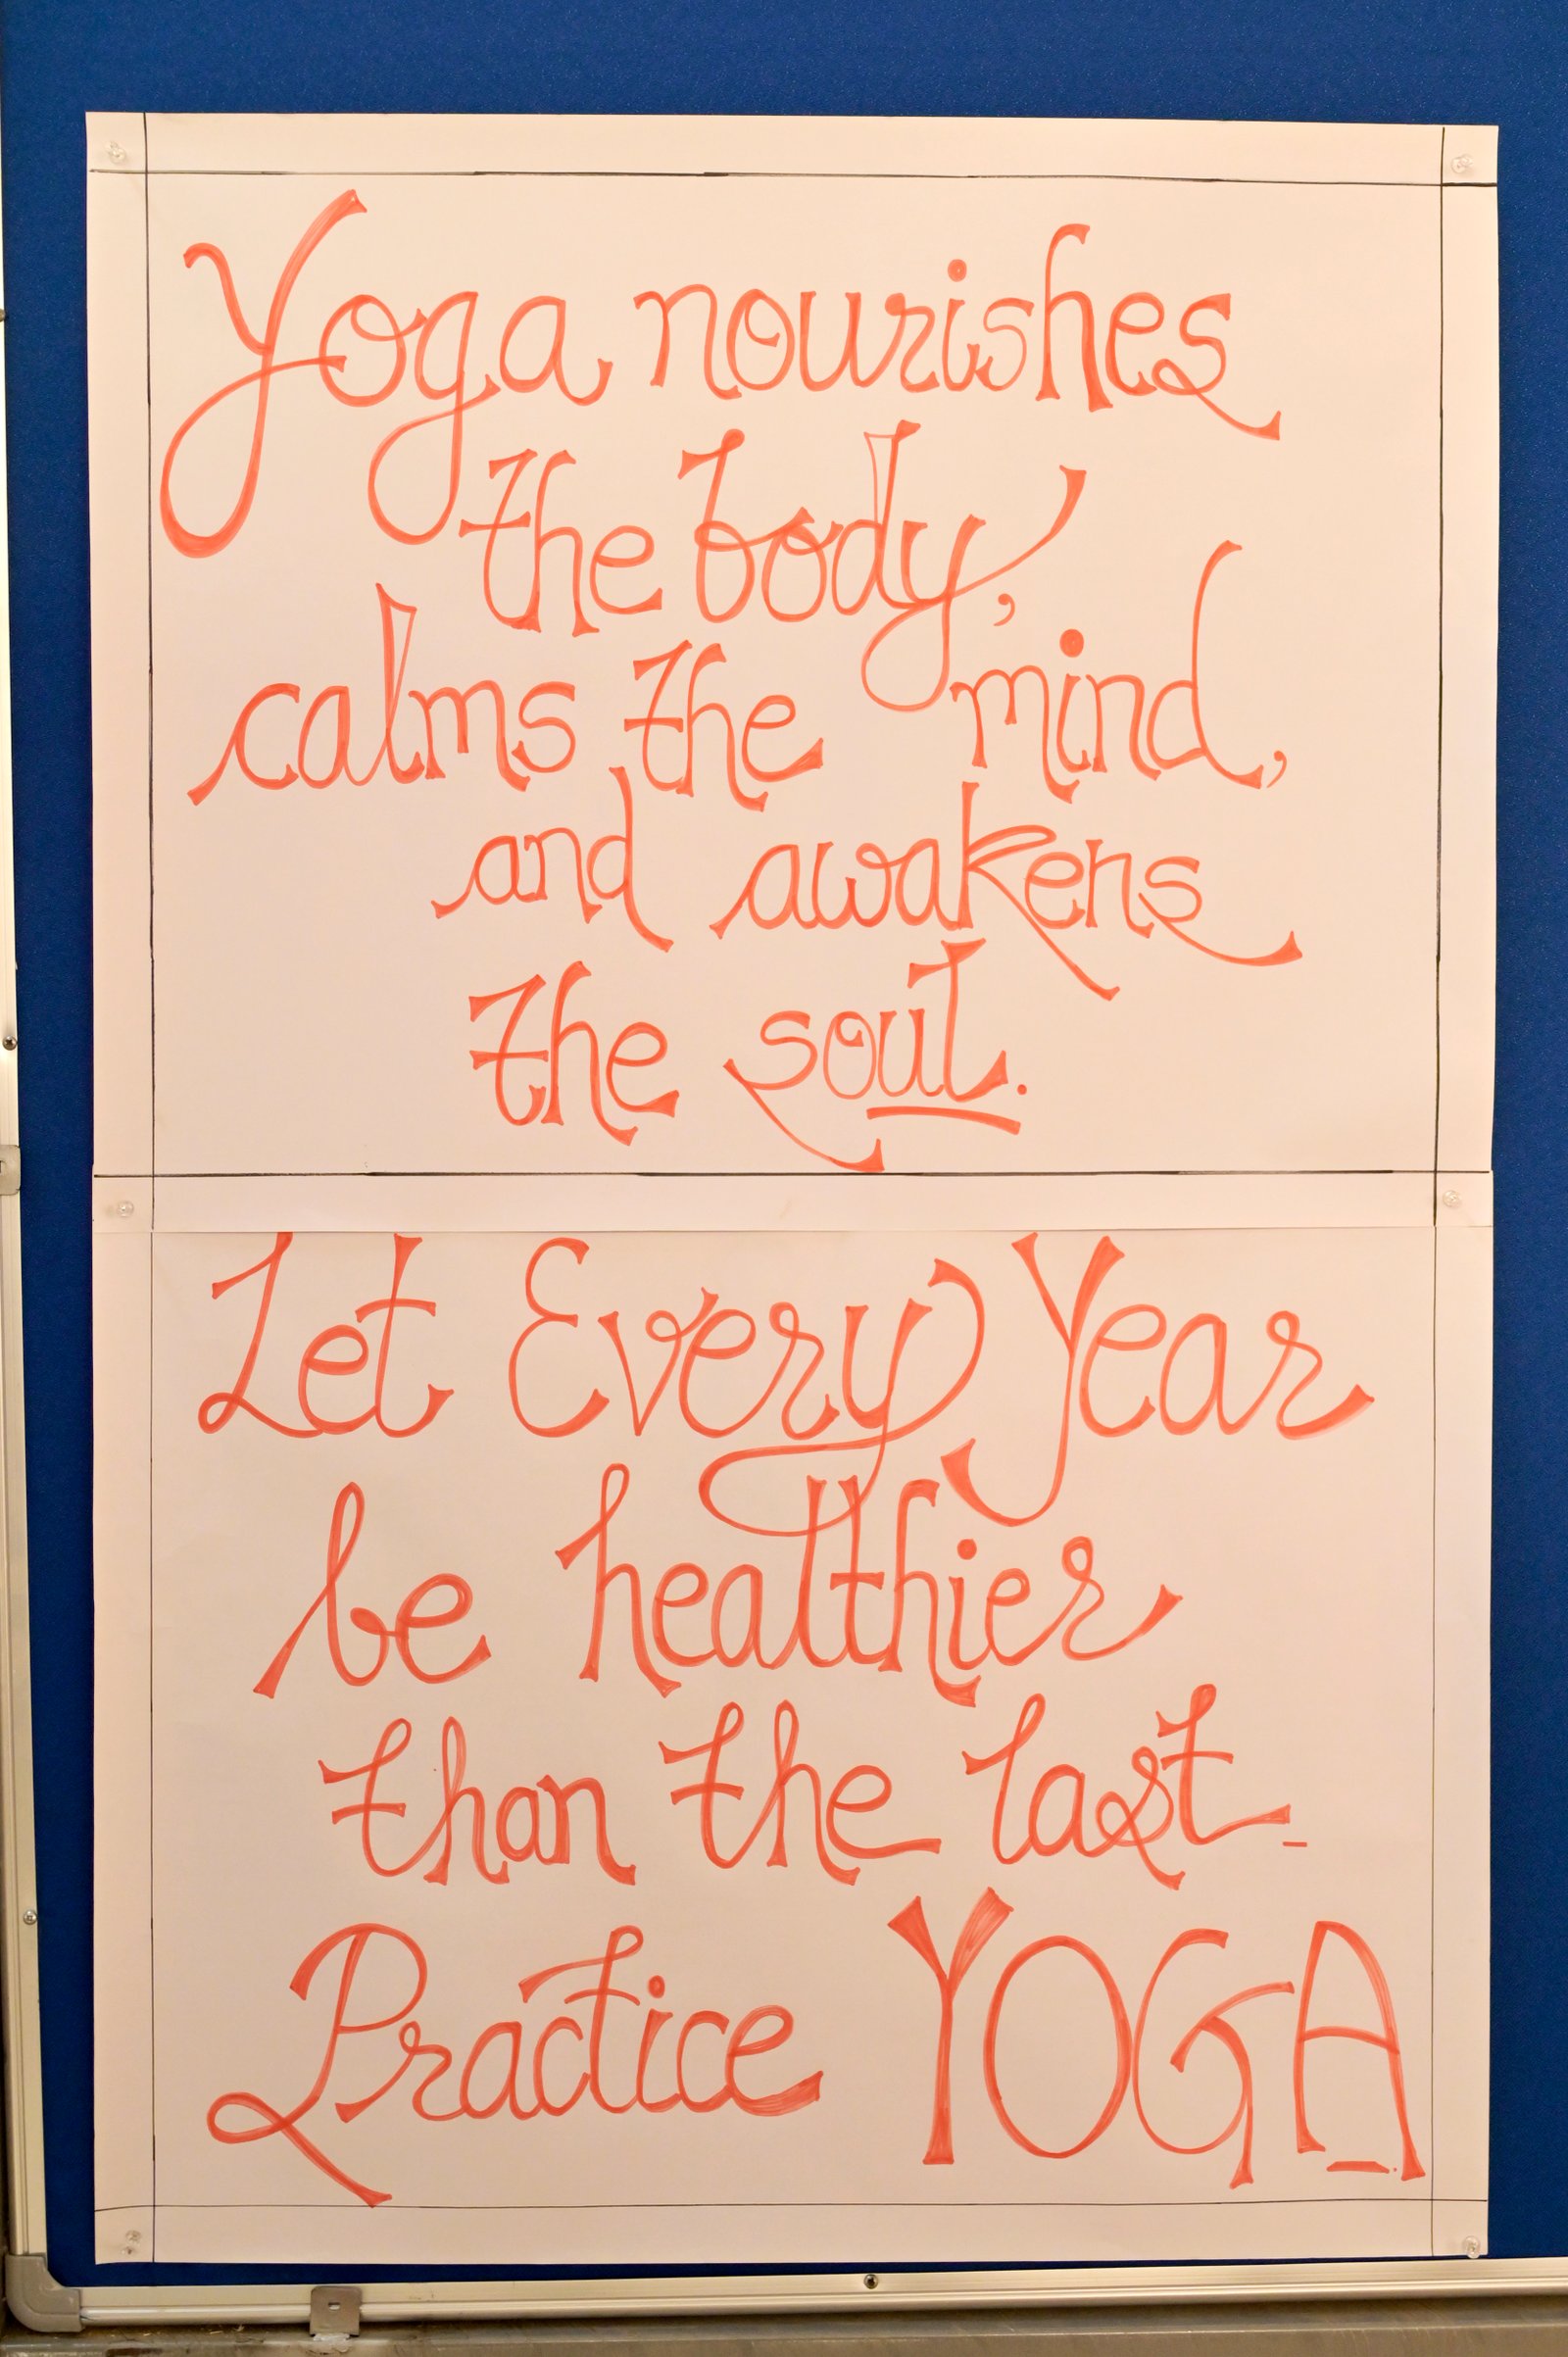 Yoga nourishes
the body,
calms the mind,
and awakens
the soul.
Let Every Year
be healthier
than the last_
Practice YOGA